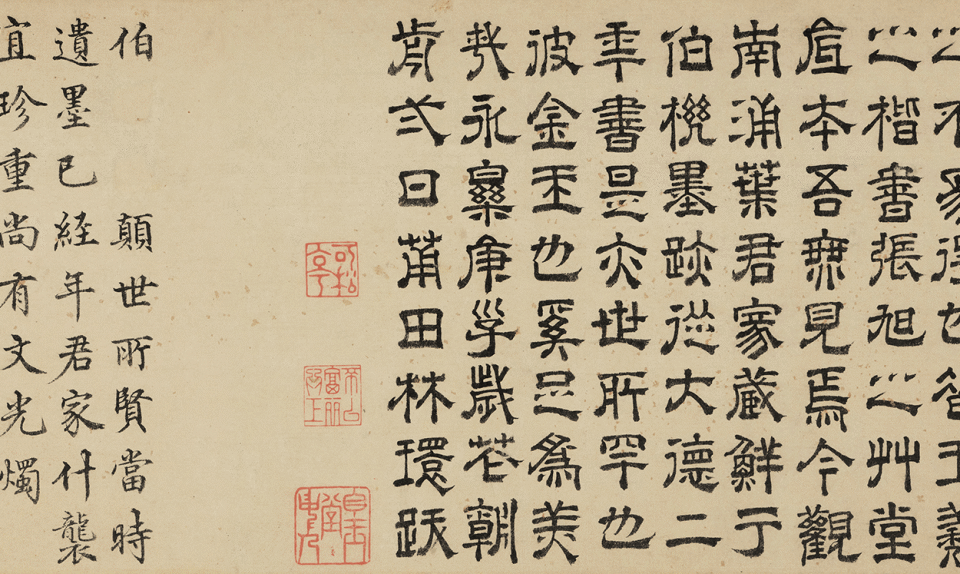 之不易得也欲王羲
之楷書張旭之艸堂
真本吾無見焉今觀
南浦葉君家藏鮮于
伯機墨跡從大德二
年書是亦世所罕也
彼金玉也奚足為美
哉永樂庚子歲花朝
前弍日莆田林環跋
可松亭
伯顛世所賢當時
遺墨已経年君家什襲
宜珍重尚有文光燭